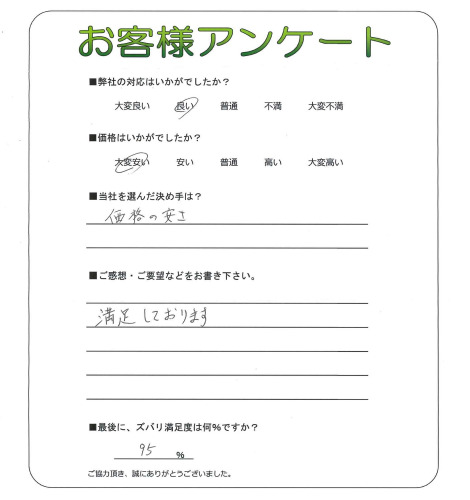 お客様アンケート
■弊社の対応はいかがでしたか？
大変良い 良い 普通 不満 大変不満
■価格はいかがでしたか？
大変安い 安い 普通 高い 大変高い
■当社を選んだ決め手は？
価格の安さ
■ご感想・ご要望などをお書き下さい。
満足しております
■最後に、ズバリ満足度は何%ですか？
95 %
ご協力頂き、誠にありがとうございました。